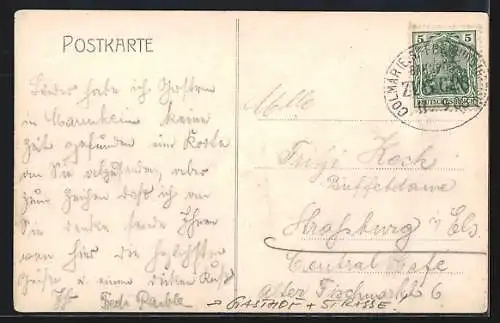 POSTKARTE
5 5
COLMAR
DEUTSCHES REICH
Leider habe ich gestern
in Mannheim keine
Zeit gefunden um Karte
an Sie abzusenden, aber
zum Zeichen daß ich an
Sie denke sende Ihnen
von hier die herzlichsten
Grüße u. einen dicken Kuß
Ihr
Mlle
Fritzi Koch
Buffetdame
Straßburg i/Els.
Central Cafe
Alter Fischmarkt 6
→ GASTHOF + STRASSE